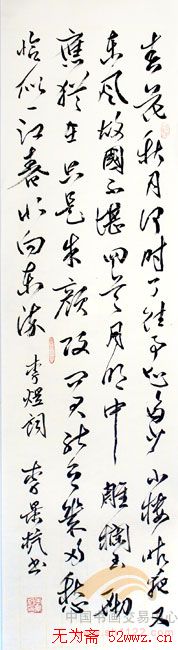 春花秋月何時了往事知多少小樓昨夜又
東風故國不堪回首月明中雕欄玉砌
應猶在只是朱顏改問君能有幾多愁
恰似一江春水向東流 李煜詞 李景杭書
中国书画交易中心
无为斋 52wwz.cn